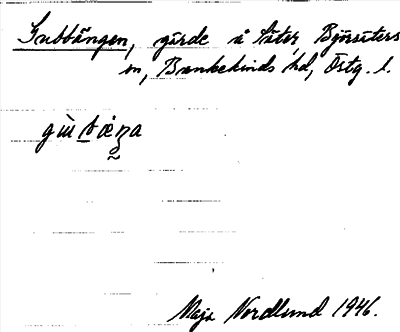 Gubbängen, gärde å Säter, Björsäters
sn, Bankekinds hd, Östg. l.
gùbæ̀ŋa
Maja Nordlund 1946.